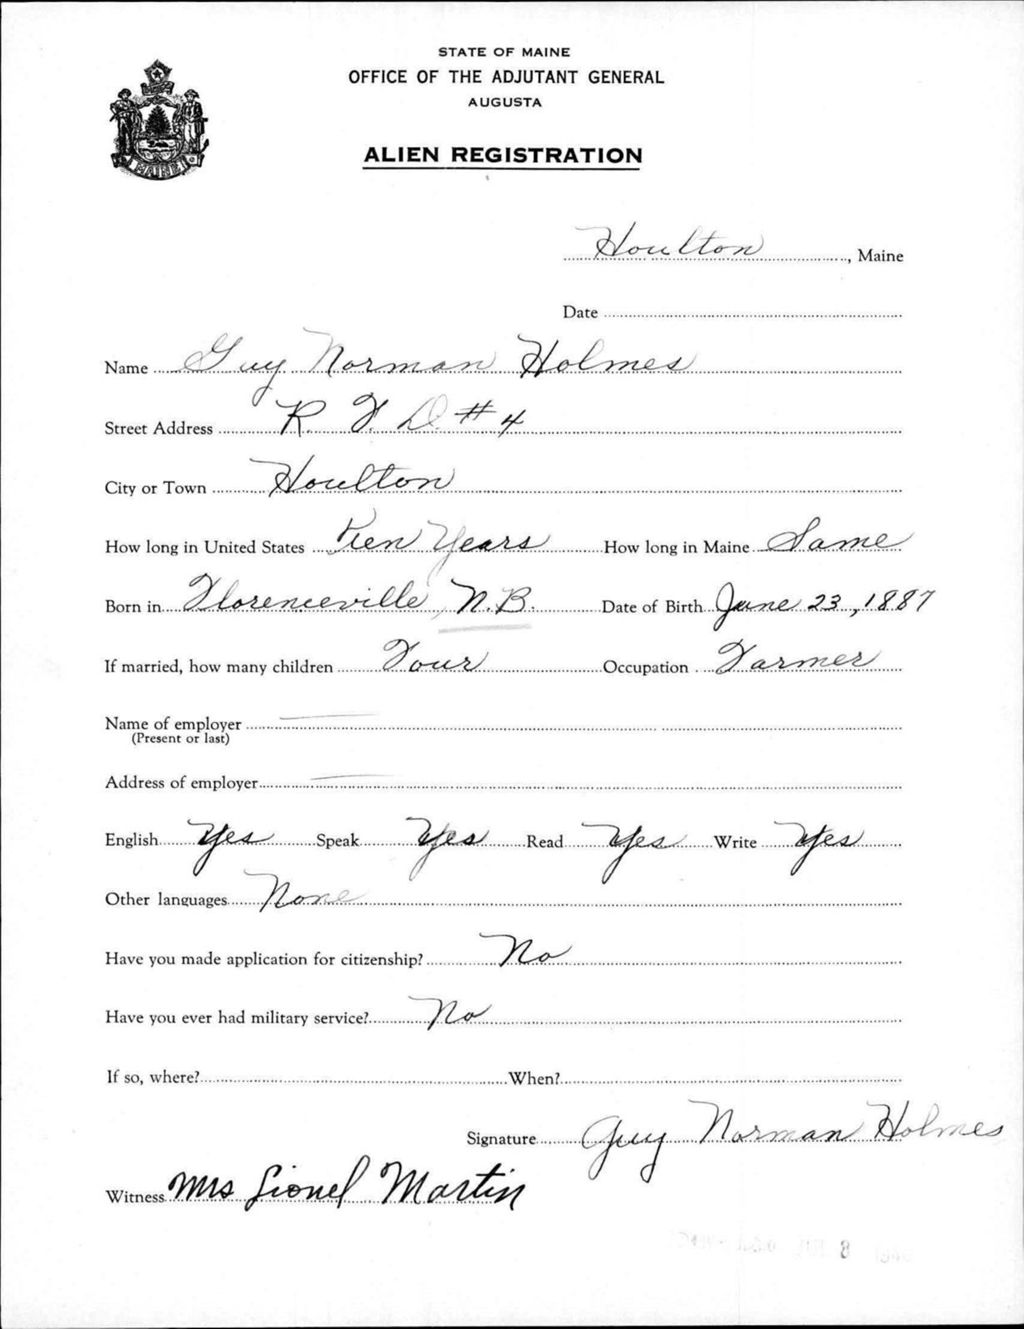 STATE OF MAINE
OFFICE OF THE ADJUTANT GENERAL
AUGUSTA
ALIEN REGISTRATION
MAINE
Houlton, Maine
Date
Name Guy Norman Holmes
Street Address R. F. D. #4
City or Town Houlton
How long in United States Ten Years How long in Maine Same
Born in Florenceville, N.B. Date of Birth June 23, 1887
If married, how many children Four Occupation Farmer
Name of employer
(Present or last)
Address of employer
English Yes Speak Yes Read Yes Write Yes
Other languages None
Have you made application for citizenship? No
Have you ever had military service? No
If so, where? When?
Signature Guy Norman Holmes
Witness Mrs Lionel Martin
8